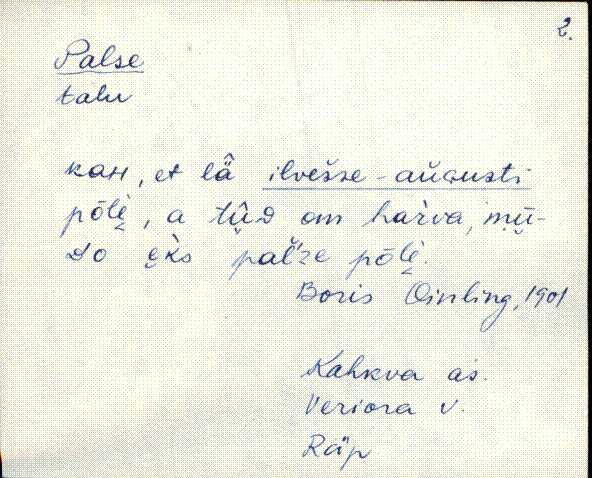 2.
Palse
talu
kaн, et lǟ ilvešse-aŭgusti
põlè̮, a tṷ̄D om har̀va, mū̮-
Do e̮k̀s pal̆'ze põlè̮.
Boris Oinling, 1901
Kahkva as.
Veriora v.
Räp